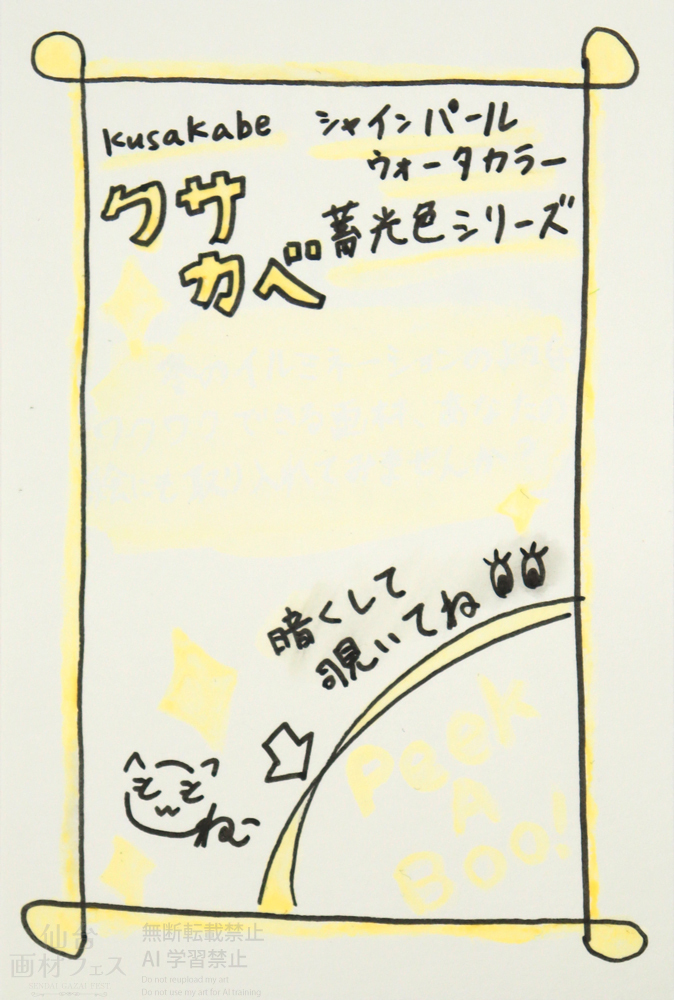 kusakabe
クサ
カベ
シャインパール
ウォータカラー
蓄光色シリーズ
暗くして
覗いてね
Peek
A
Boo!
ねこ
仙台
画材フェス
SENDAI GAZAI FEST
無断転載禁止
AI 学習禁止
Do not reupload my art
Do not use my art for AI training